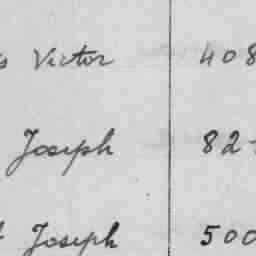 Victor 408
Joseph 82
Joseph 500